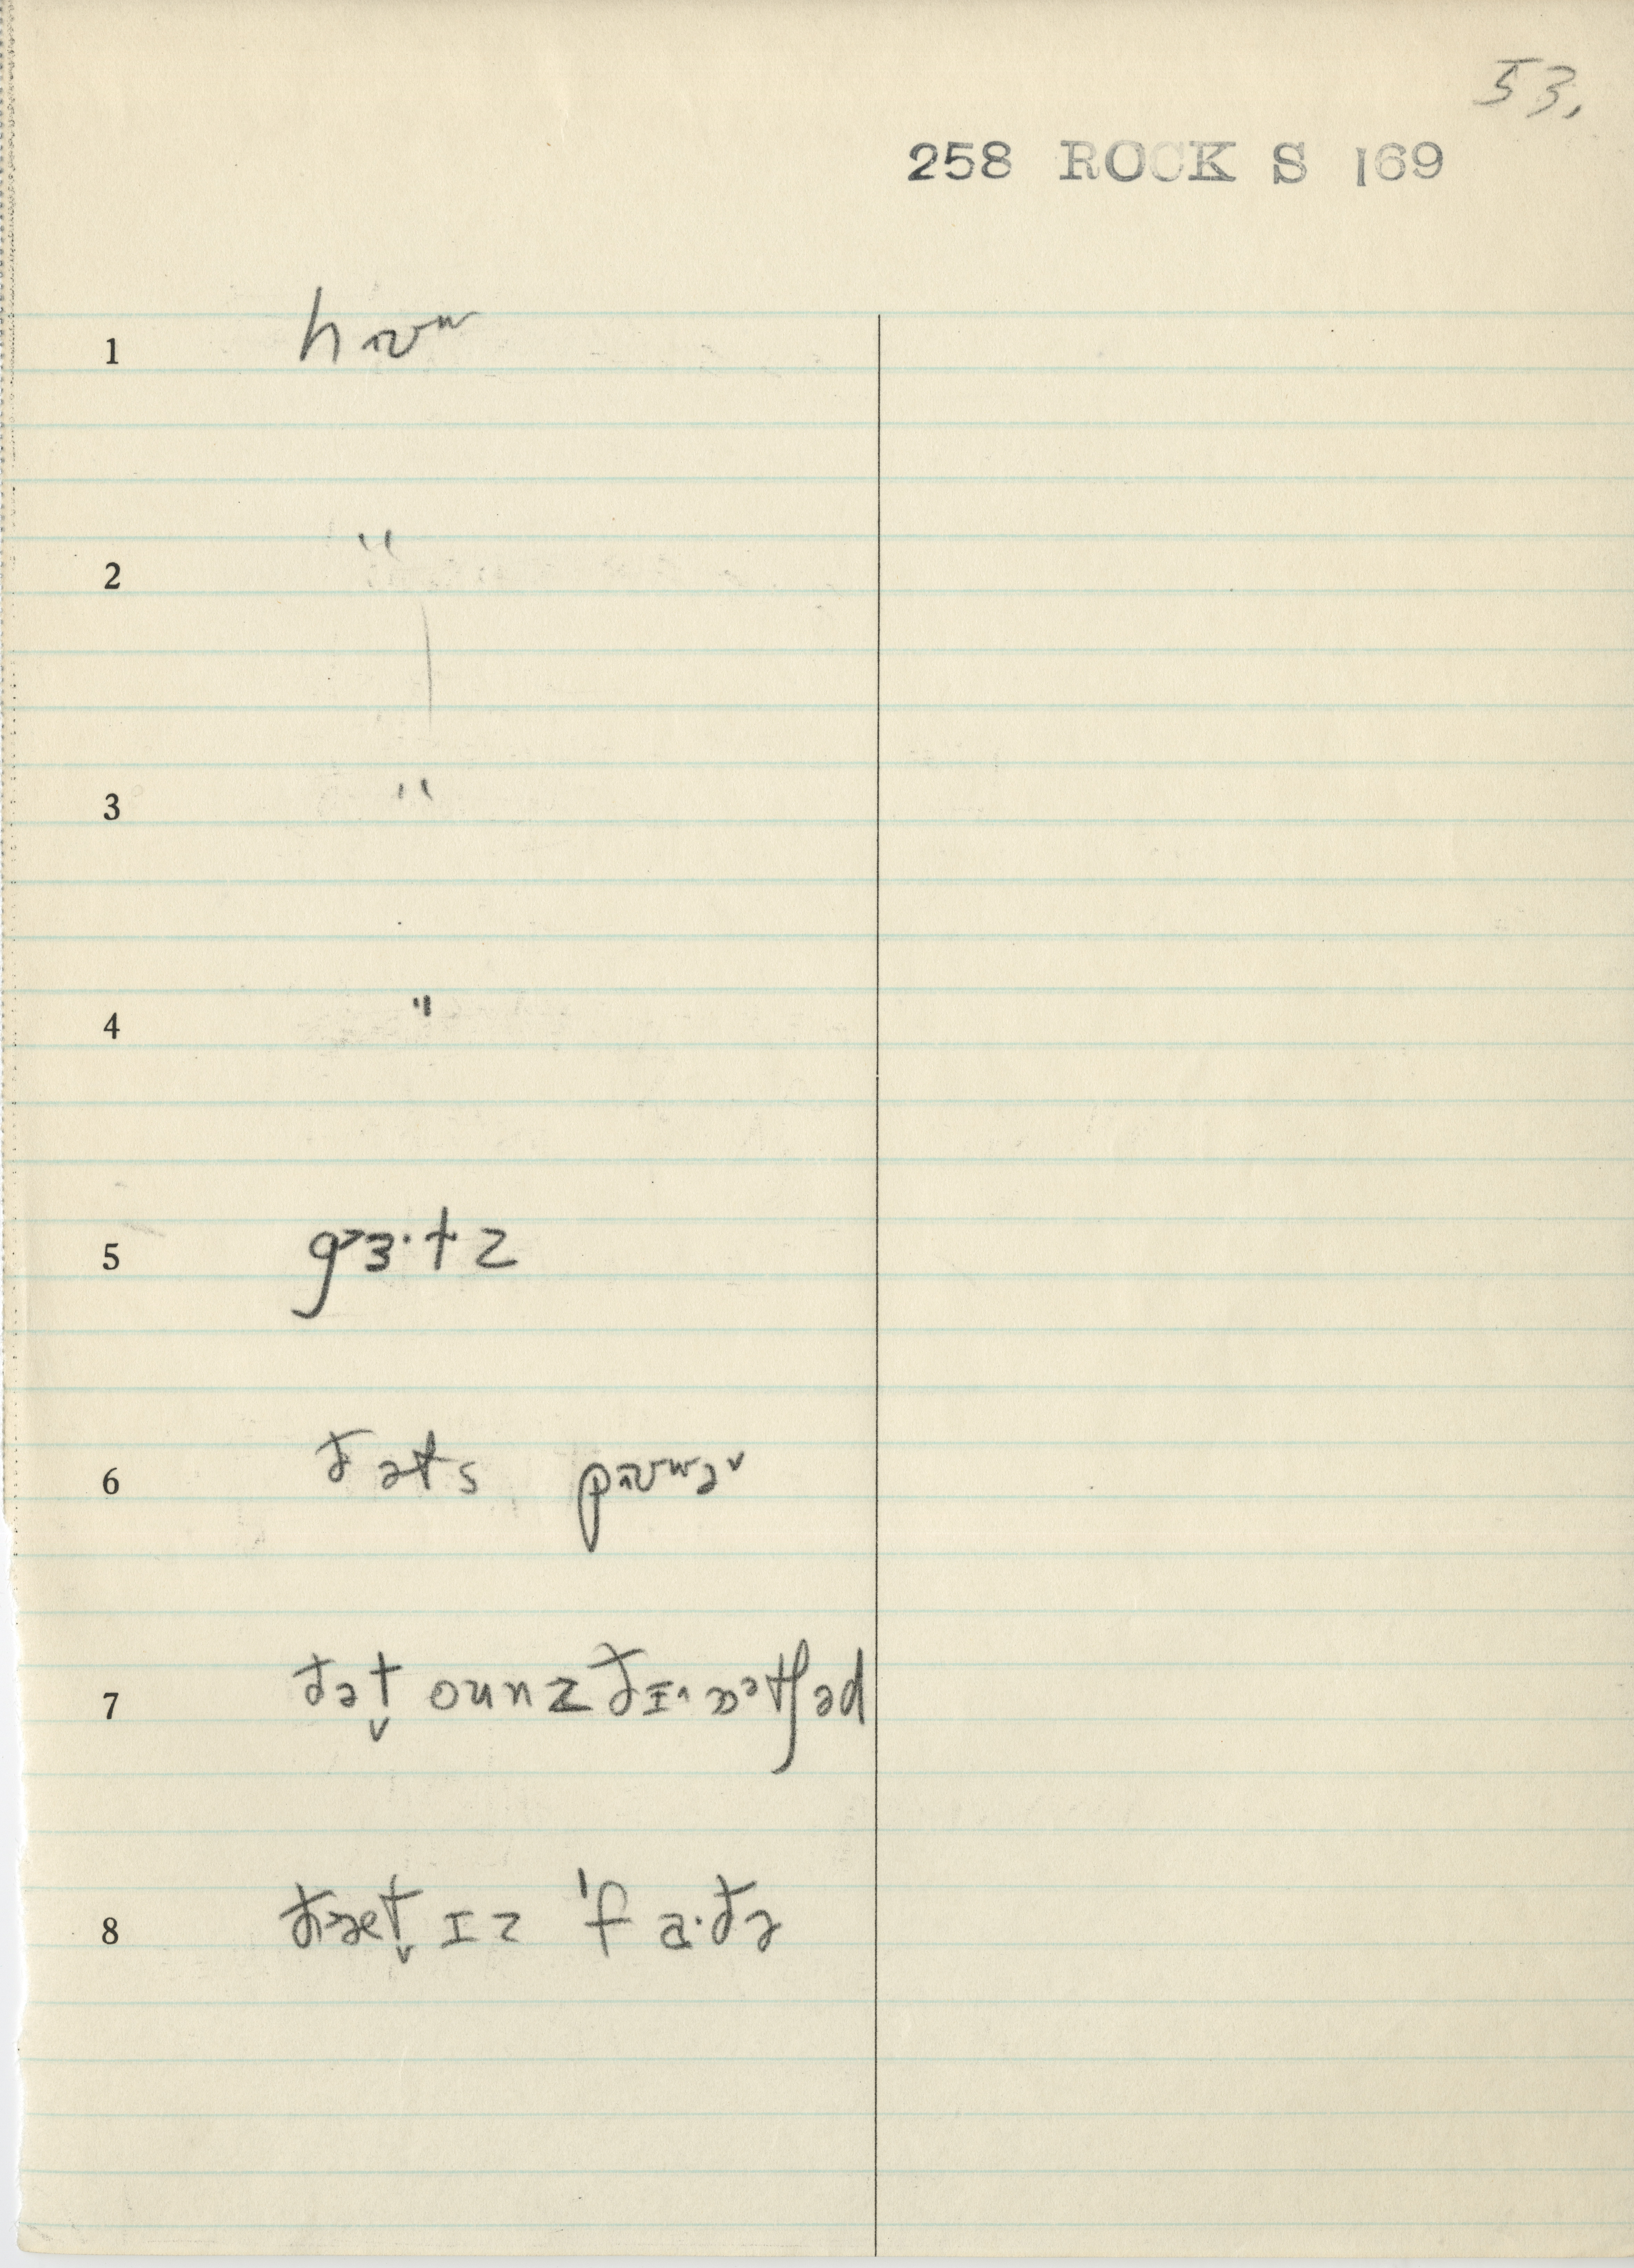 53.
258 ROCK S 169
1
2 "
3 "
4 "
5 gɜ·tz
6 ðəts
7 ðət̬ ounz ðɪ·
8 ðæt̬ ɪz 'fa·ðə